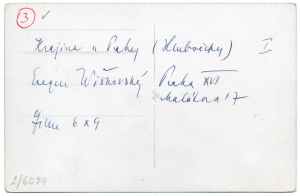 3 ✓
Krajina u Prahy (Hlubočepy) I
Evgen Wiškovský Praha XVI
Malátova 17
Filme 6 x 9
2/6079